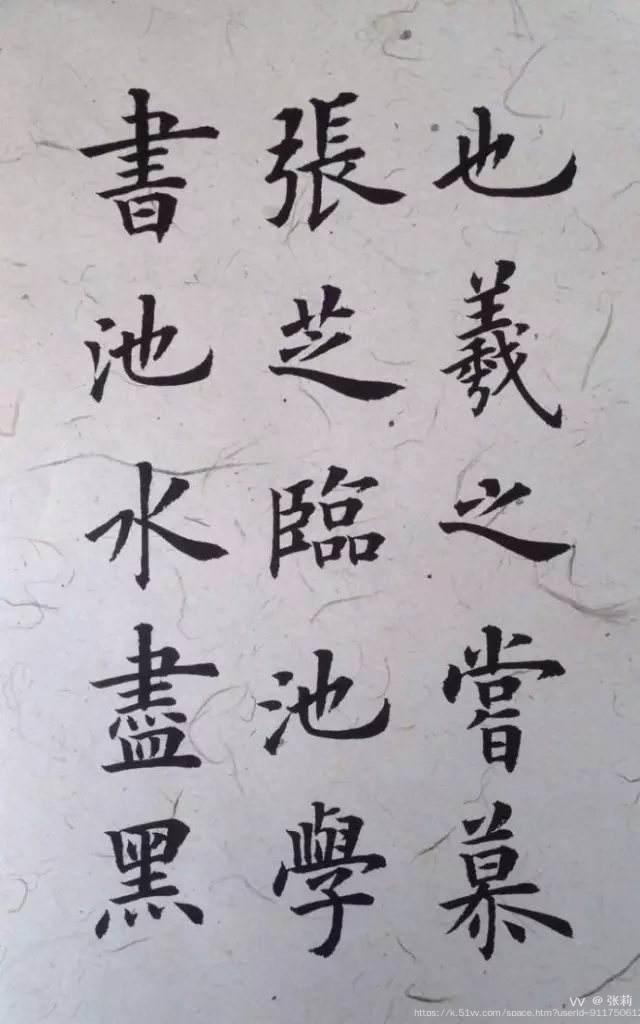 也羲之嘗慕
張芝臨池學
書池水盡黑
VV @ 张莉
https://k.51vv.com/space.htm?userId=91175061